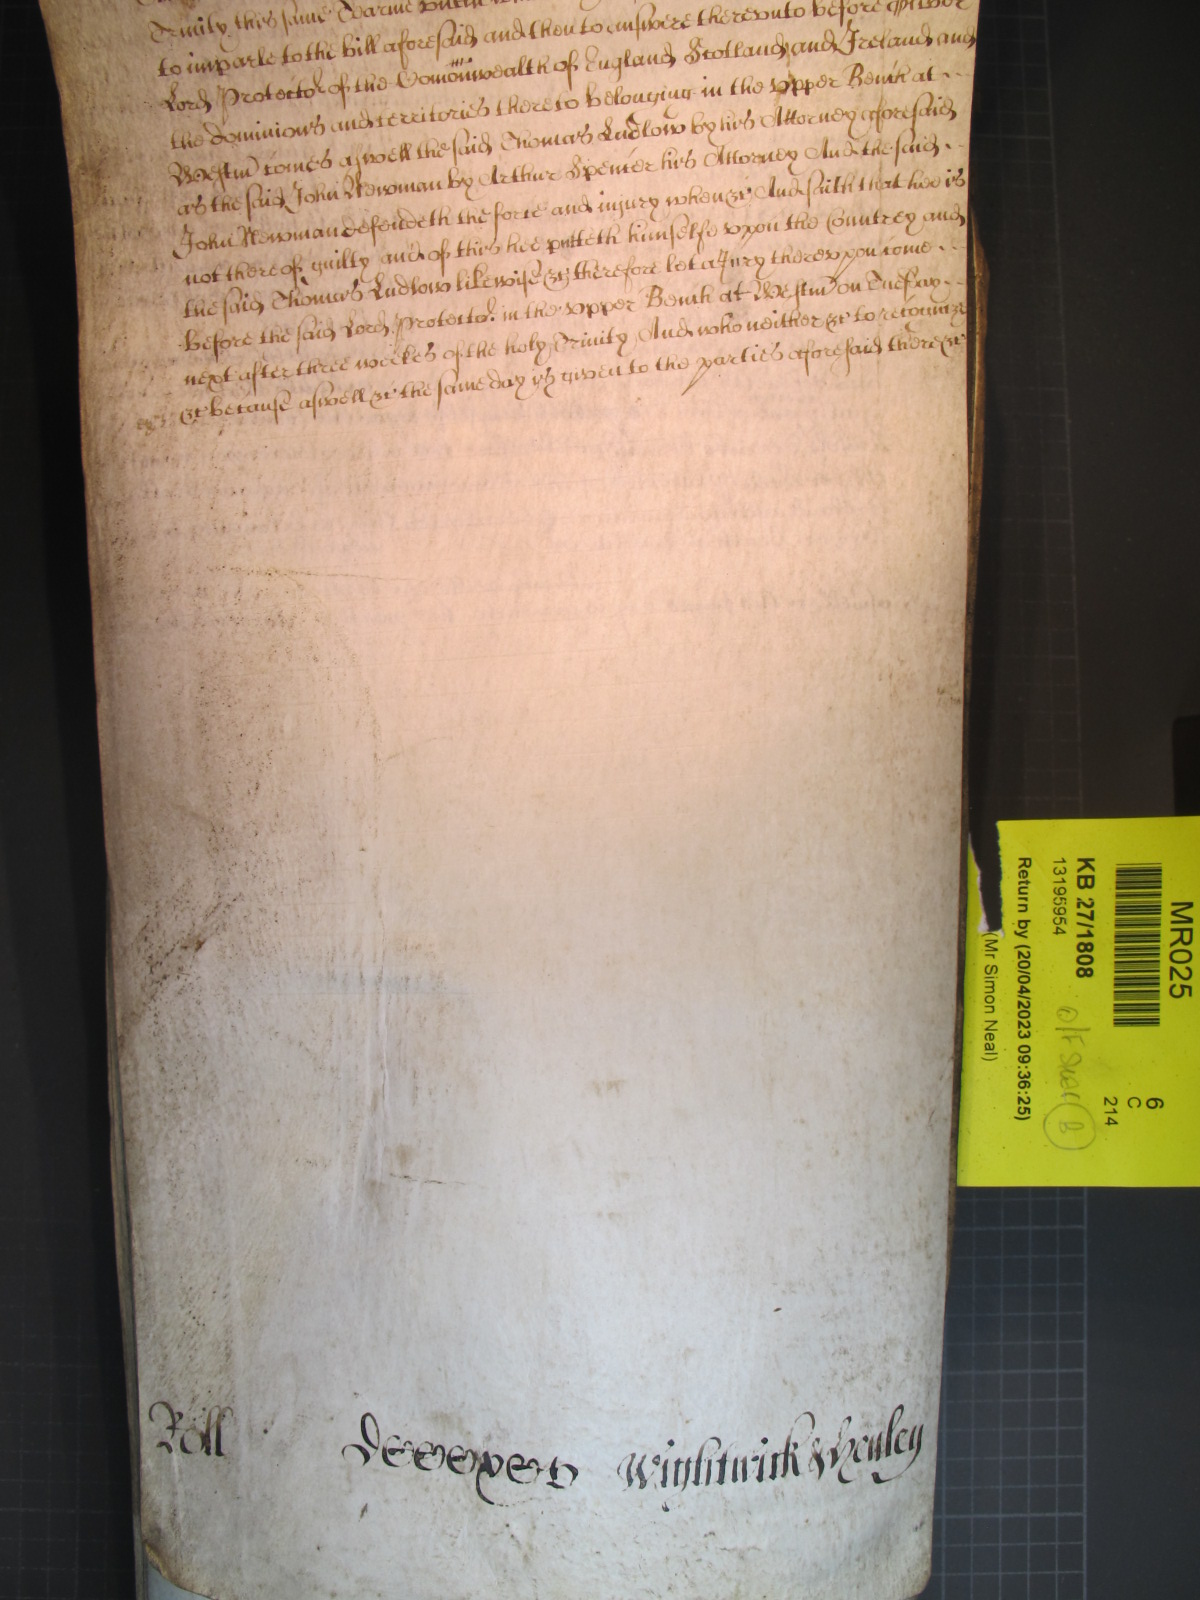 Trinity this same Tearme untill
to imparle to the bill aforesaid and then to answere thereunto before
Lord Protector of the Comonwealth of England Scotland and Ireland and
the dominions and territories thereto belonging in the upper Bench at
Westm comes aswell the said Thomas Ludlow by his Attorney aforesaid
as the said John Newman by Arthur Spencer his Attorney And the said
John Newman defendeth the force and injury when &c And saith that hee is
not thereof guilty and of this hee putteth himselfe upon the Countrey and
the said Thomas Ludlow likewise &c therefore let a Jury thereupon come
before the said Lord Protector in the upper Bench at Westm on Tuesday
next after three weekes of the holy Trinity And who neither &c to recognize
&c because aswell &c the same day is given to the parties aforesaid there &c
Roll
Wightwick & Henley
MR025
6
C
214
KB 27/1808
13195954
Return by (20/04/2023 09:36:25)
(Mr Simon Neal)
B